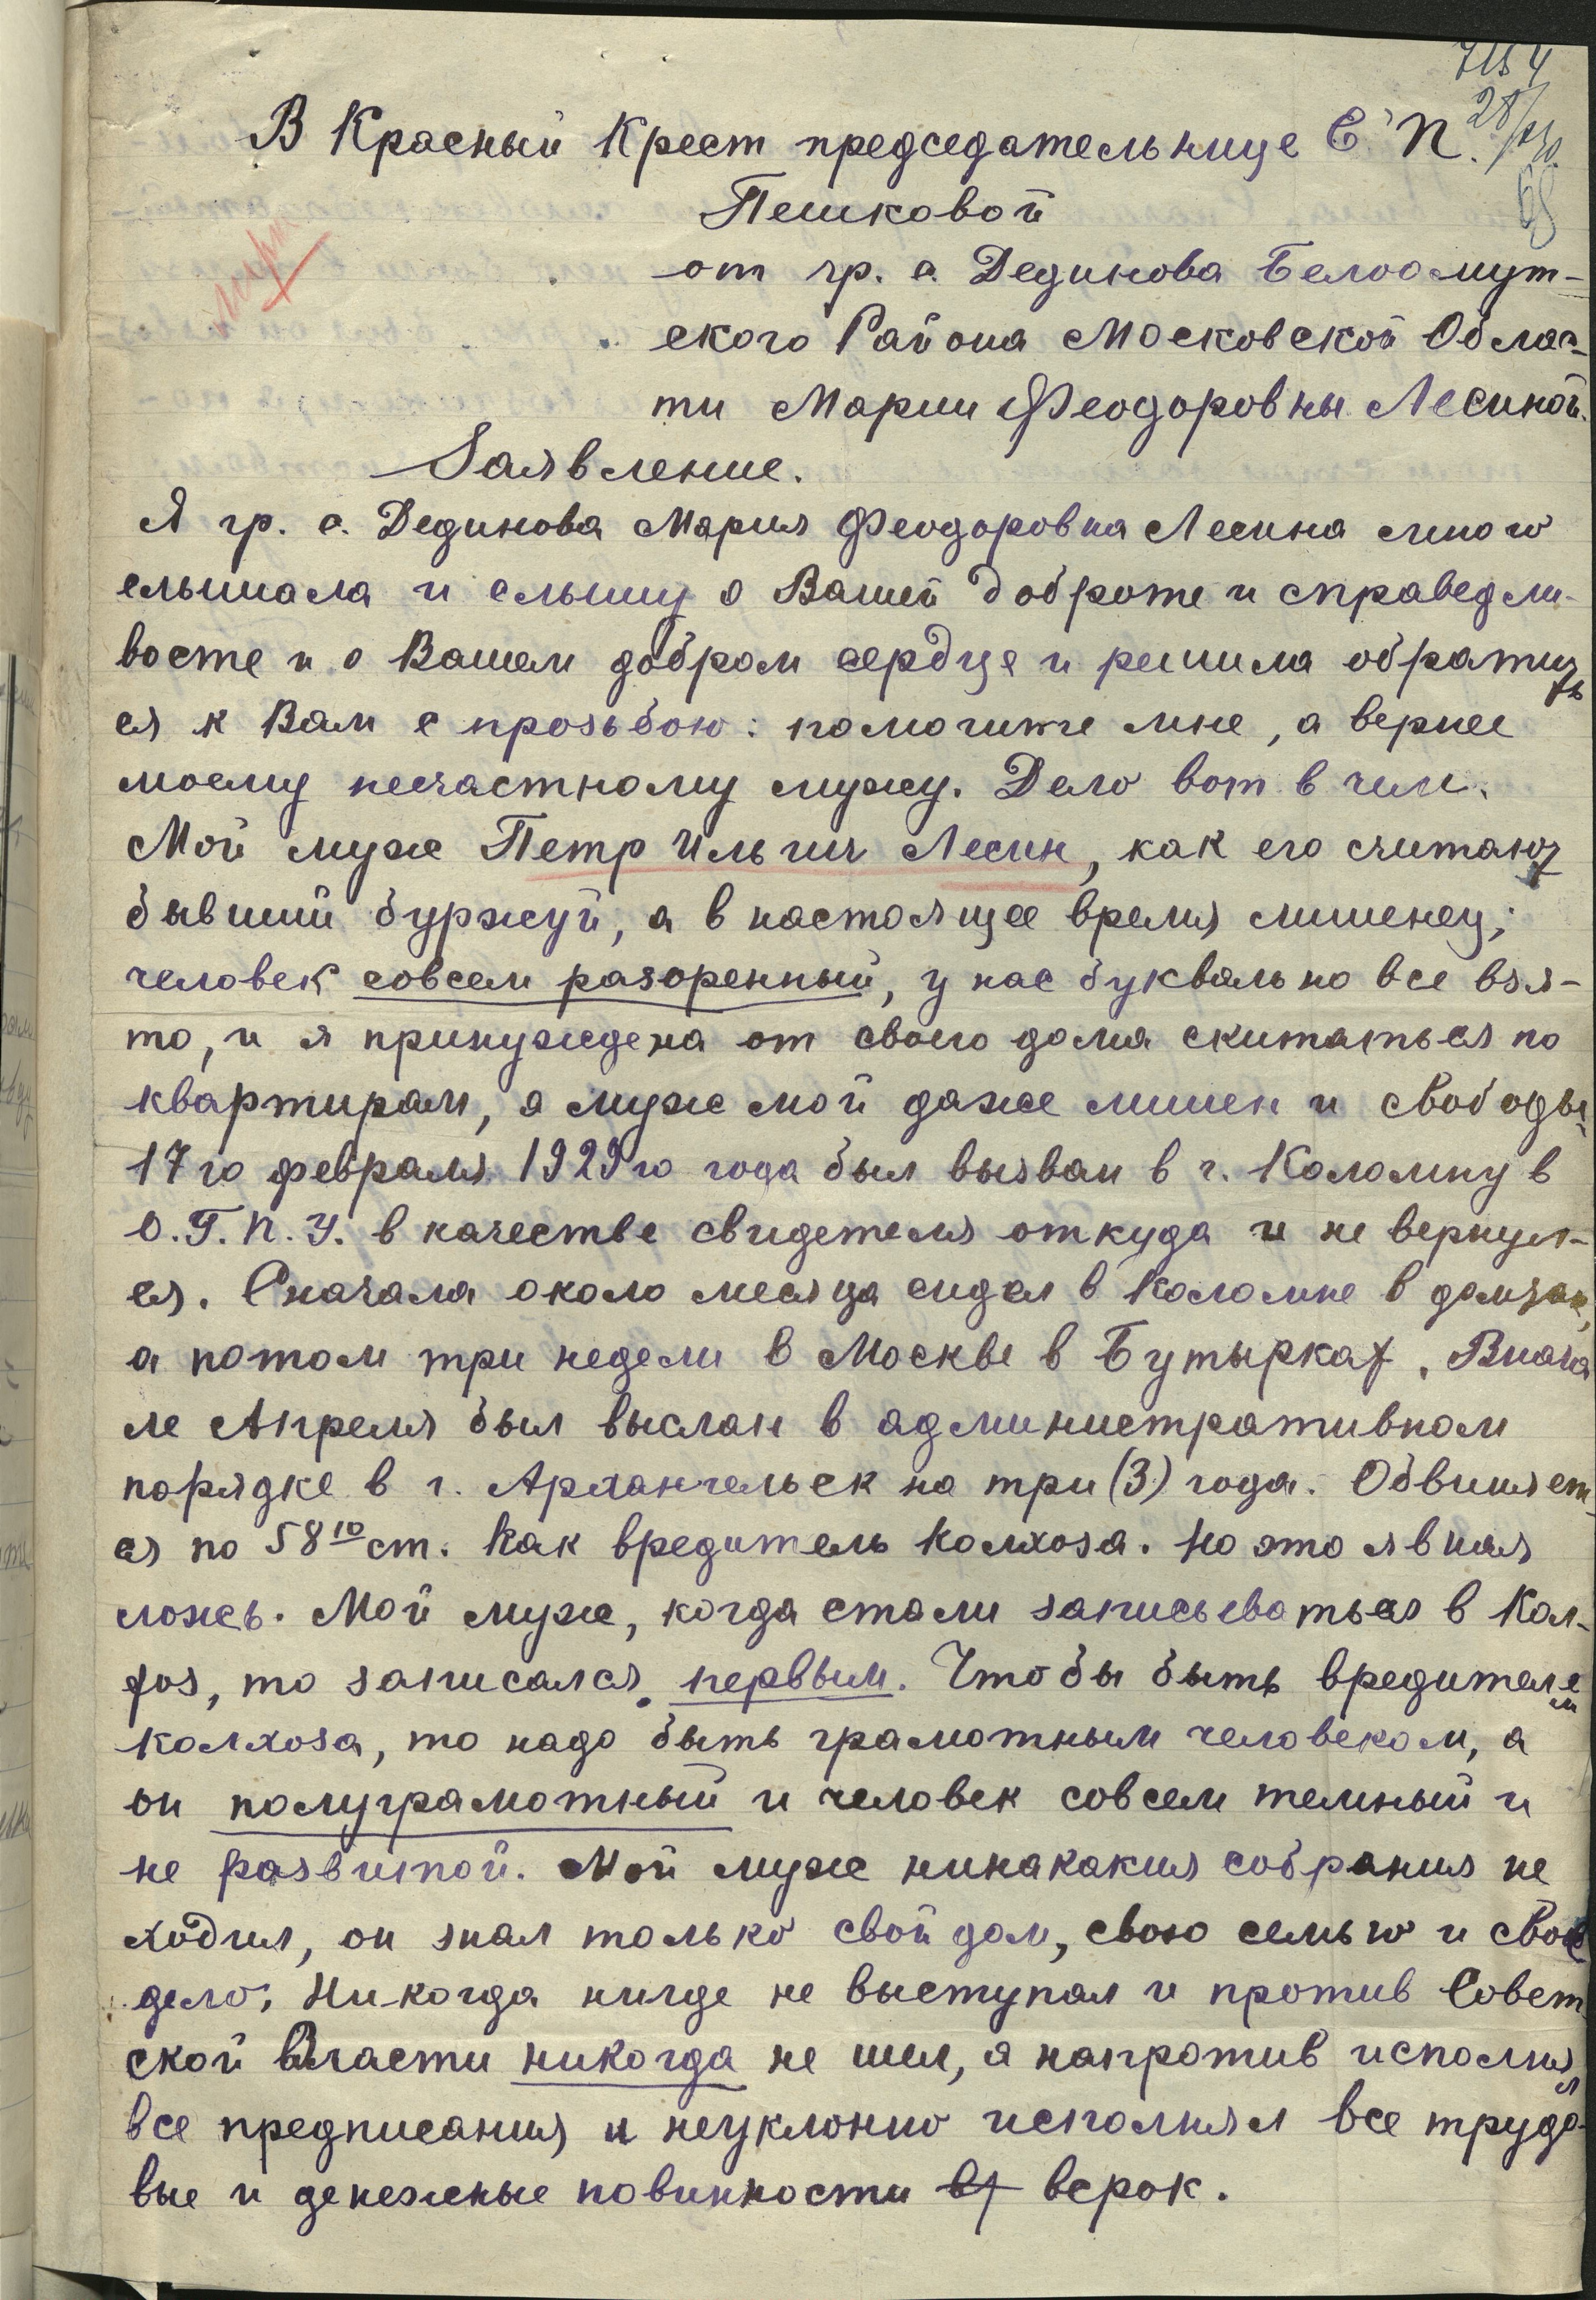 7154
28/
68
В Красный Крест председательнице Е. П.
Пешковой
от гр. с. Дединова Белоомут-
ского Района Московской Облас-
ти Марии Феодоровны Лесиной.
Заявление.
Я гр. с. Дединова Мария Феодоровна Лесина много
слышала и слышу о Вашей доброте и справедли-
восте и о Вашем добром сердце и решила обратить
ся к Вам с прозьбою: помогите мне, а вернее
моему несчастному мужу. Дело вот в чем.
Мой муж Петр Ильич Лесин, как его считают
бывший буржуй, а в настоящее время лишенец;
человек совсем разоренный, у нас буквально все взя-
то, и я принуждена от своего дома скитаться по
квартирам, а муж мой даже лишен и свободы.
17го февраля 1929го года был вызван в г. Коломну в
О.Г.П.У. в качестве свидетеля откуда и не вернул-
ся. Сначала около месяца сидел в Коломне в домзаке,
а потом три недели в Москве в Бутырках. Внача
ле Апреля был выслан в административном
порядке в г. Архангельск на три (3) года. Обвиняет-
ся по 58 10 ст. Как вредитель Колхоза. Но это явная
ложь. Мой муж, когда стали записываться в Кол-
хоз, то записался первым. Чтобы быть вредителем
колхоза, то надо быть грамотным человеком, а
он полуграмотный и человек совсем темный и
не развитой. Мой муж нинакакия собрания не
ходил, он знал только свой дом, свою семью и свое
дело. Никогда нигде не выступал и против Совет
ской Власти никогда не шел, а напротив исполнял
все предписания и неуклонно исполнял все трудо-
вые и денежные повинности в срок.